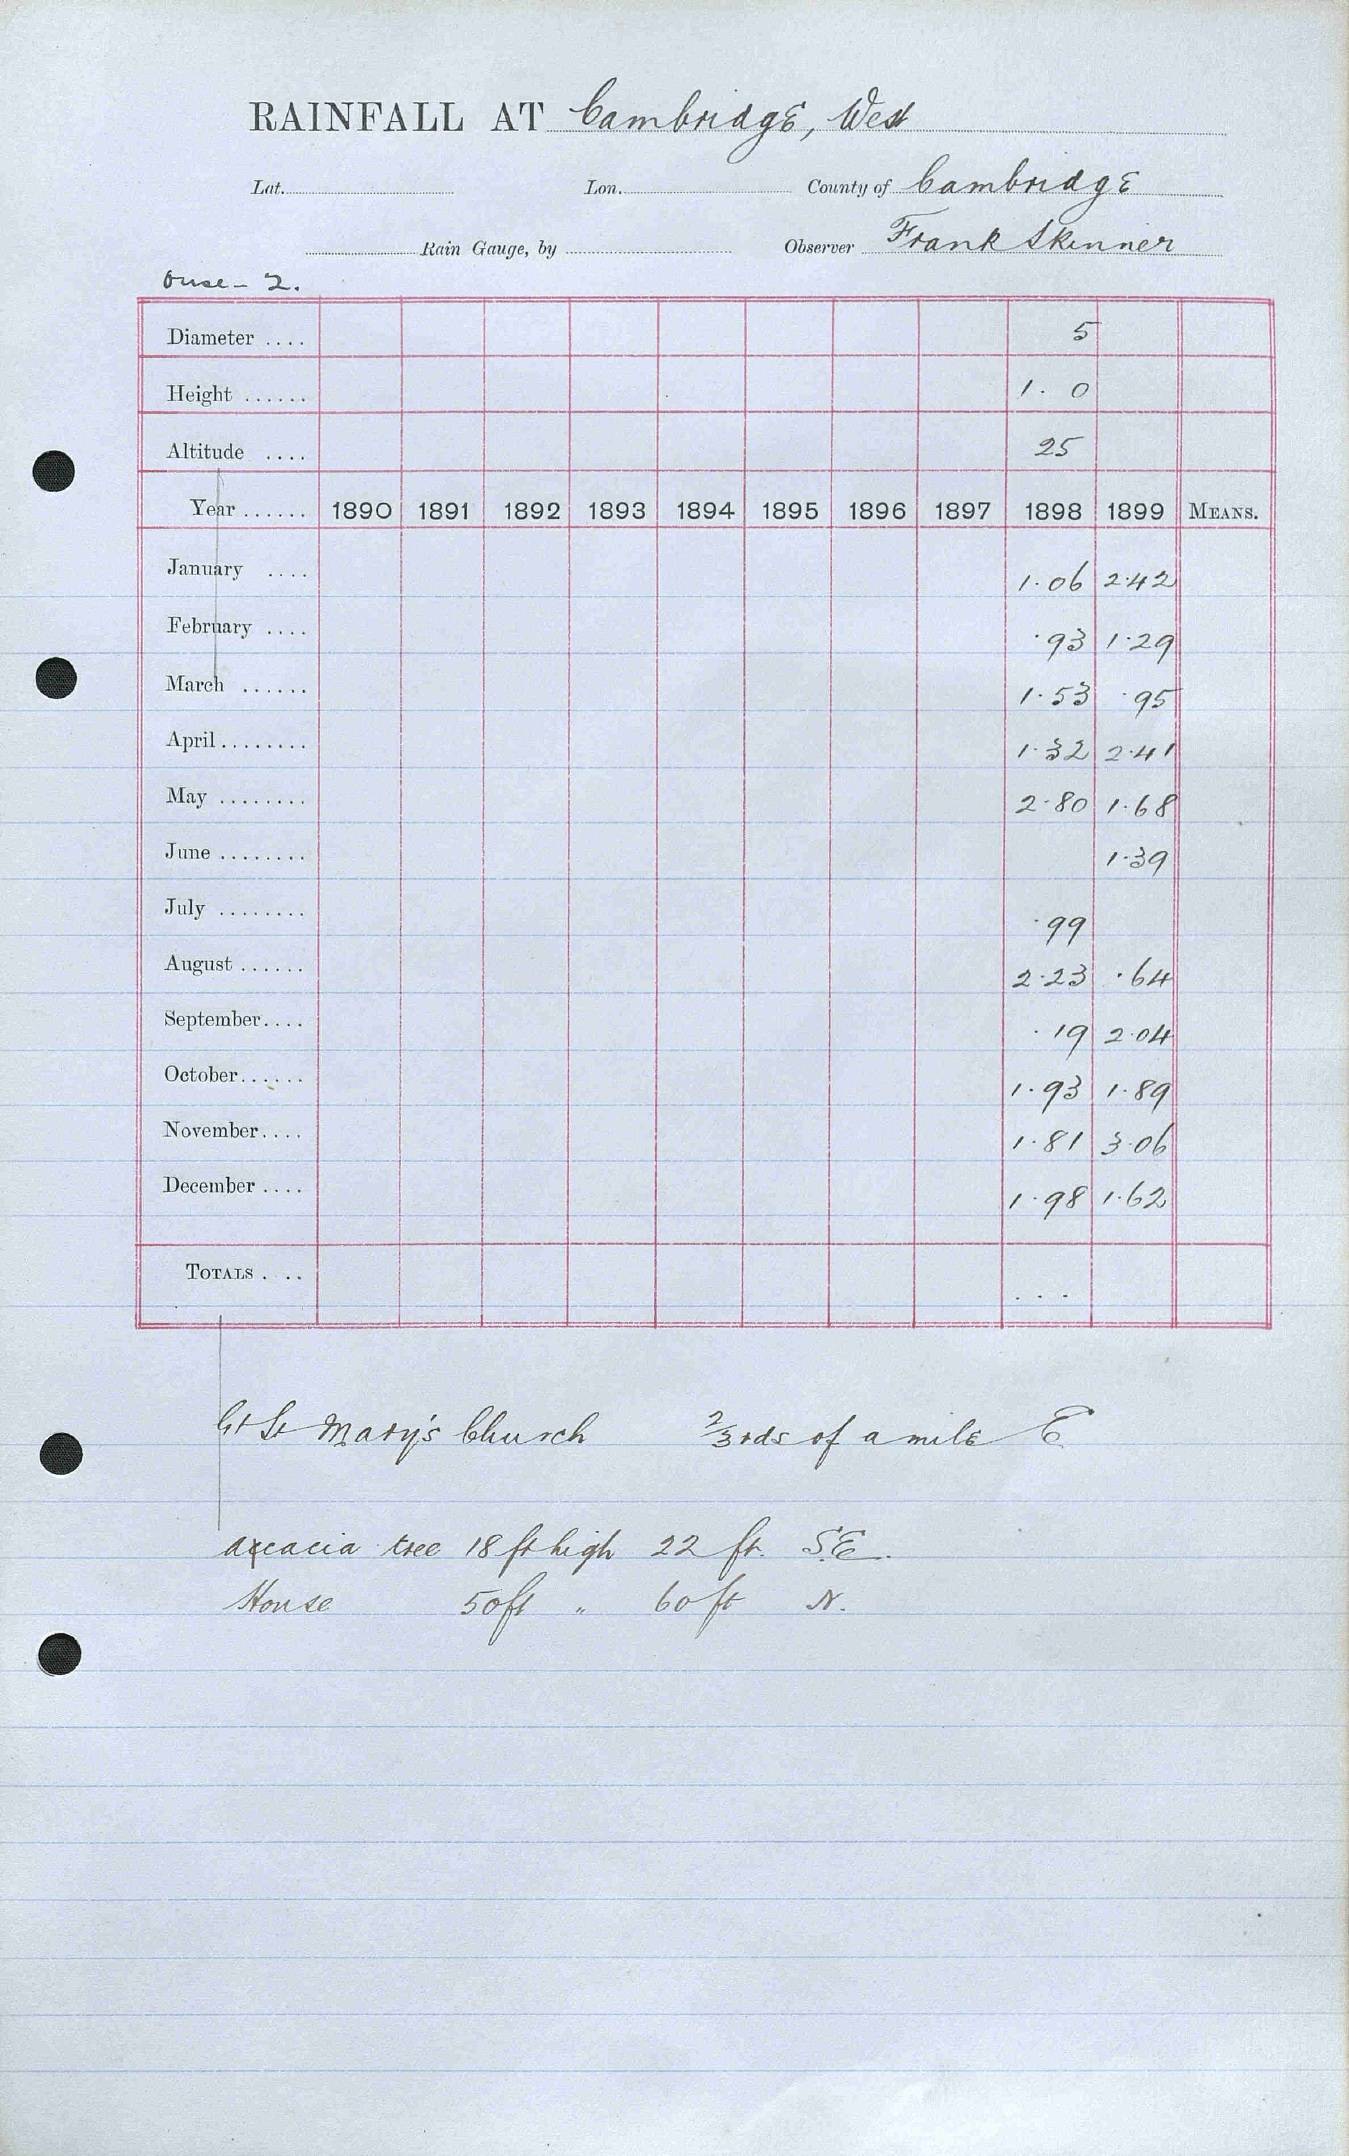 RAINFALL AT Cambridge, West
Lat. Lon. County of Cambridge
Rain Gauge, by Observer Frank Skinner
Ouse - 2.
Diameter .... 5
Height ...... 1. 0
Altitude .... 25
Year ...... 1890 1891 1892 1893 1894 1895 1896 1897 1898 1899 MEANS.
January .... 1.06 2.42
February .... .93 1.29
March ...... 1.53 .95
April ........ 1.32 2.41
May ........ 2.80 1.68
June ........ 1.39
July ........ .99
August ...... 2.23 .64
September.... .19 2.04
October...... 1.93 1.89
November.... 1.81 3.06
December .... 1.98 1.62
TOTALS . .. ...
Gt St Mary's Church 2/3rds of a mile E
accacia tree 18 ft high 22 ft. S.E.
House 50ft " 60 ft N.